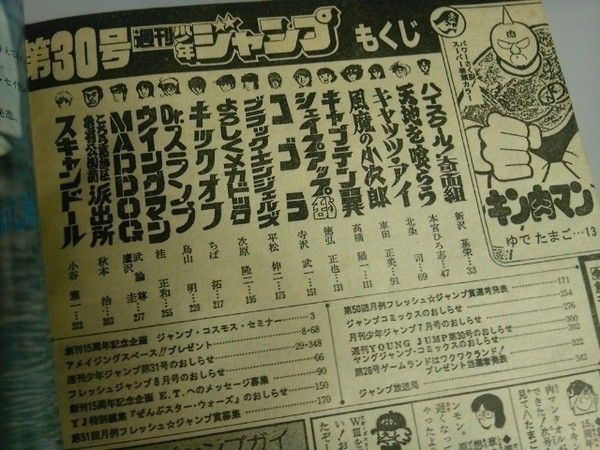 第30号 週刊少年ジャンプ もくじ
パワーパワー!!
スーパー巻頭カラー
肉
キン肉マン
ゆでたまご…13
ハイスクール!奇面組 新沢基栄…33
天地を喰らう 本宮ひろ志…47
キャッツ・アイ 北条司…69
風魔の小次郎 車田正美…91
キャプテン翼 高橋陽一…111
シェイプアップ乱 徳弘正也…131
コブラ 寺沢武一…151
ブラックエンジェルズ 平松伸二…175
よろしくメカドック 次原隆二…195
キックオフ ちば拓…217
Dr.スランプ 鳥山明…229
ウイングマン 桂正和…255
MADDOG 武論尊 鷹沢圭…277
こちら葛飾区亀有公園前派出所 秋本治…303
スキャンドール 小谷憲一…323
創刊15周年記念企画 ジャンプ・コスモス・セミナー…3
アメイジングスペース!!プレゼント…8・68
週刊少年ジャンプ第31号のおしらせ…29・348
フレッシュジャンプ8月号のおしらせ…66
創刊15周年記念企画 E.T.へのメッセージ募集…90
YJ特別編集「ぜんぶスター・ウォーズ」のおしらせ…150
第51回月例フレッシュ☆ジャンプ賞募集…170
第50回月例フレッシュ☆ジャンプ賞選考発表…171
ジャンプコミックスのおしらせ…254
月刊少年ジャンプ7月号のおしらせ…276
週刊YOUNG JUMP第30号のおしらせ…302
ヤングジャンプ・コミックスのおしらせ…322
第26号ゲームランドはワクワクランド!
プレゼント当選者発表…342
ジャンプ放送局